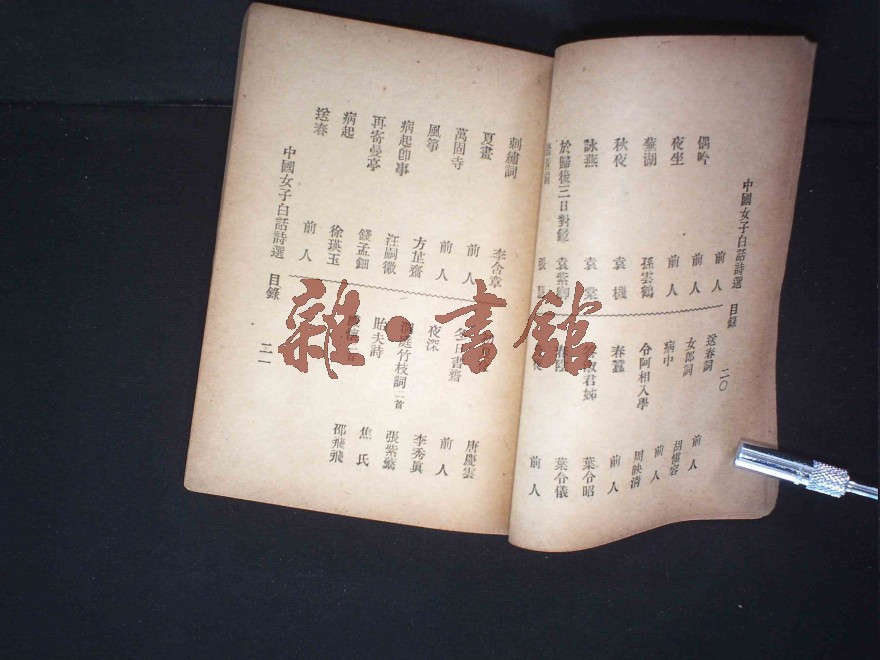 中國女子白話詩選 目錄 二〇
偶吟 前人
夜坐 前人
蕪湖 孫雲鶴
秋夜 袁機
詠燕 袁棠
於歸後三日對鏡 袁紫卿
張
送春詞 前人
女郎詞 胡慎容
病中 前人
令阿相入學 周映清
春蠶 前人
君姊 葉令昭
葉令儀
前人
刺繡詞 李含章
夏晝 前人
萬固寺 前人
風箏 方芷齋
病起即事 汪嗣徽
再寄曼亭 錢孟鈿
病起 徐瑛玉
送春 前人
唐慶雲
冬日書齋 前人
夜深 李秀眞
洞庭竹枝詞一首 張紫蘩
貽夫詩 焦氏
邵飛飛
中國女子白話詩選 目錄 二一
雜·書館